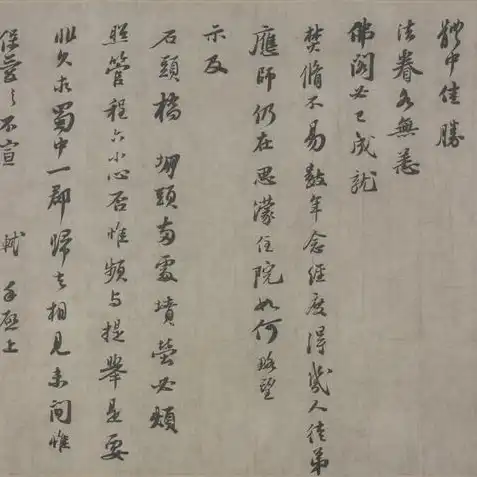 體中佳勝
法眷各無恙
佛閣必已成就
焚脩不易數年念經度得幾人徒弟
應師仍在思濛住院如何略望
示及
石頭橋堋頭兩處墳塋必煩
照管程六小心否惟頻與提舉是要
非久求蜀中一郡歸去相見未間惟
保愛之不宣 軾手啟上